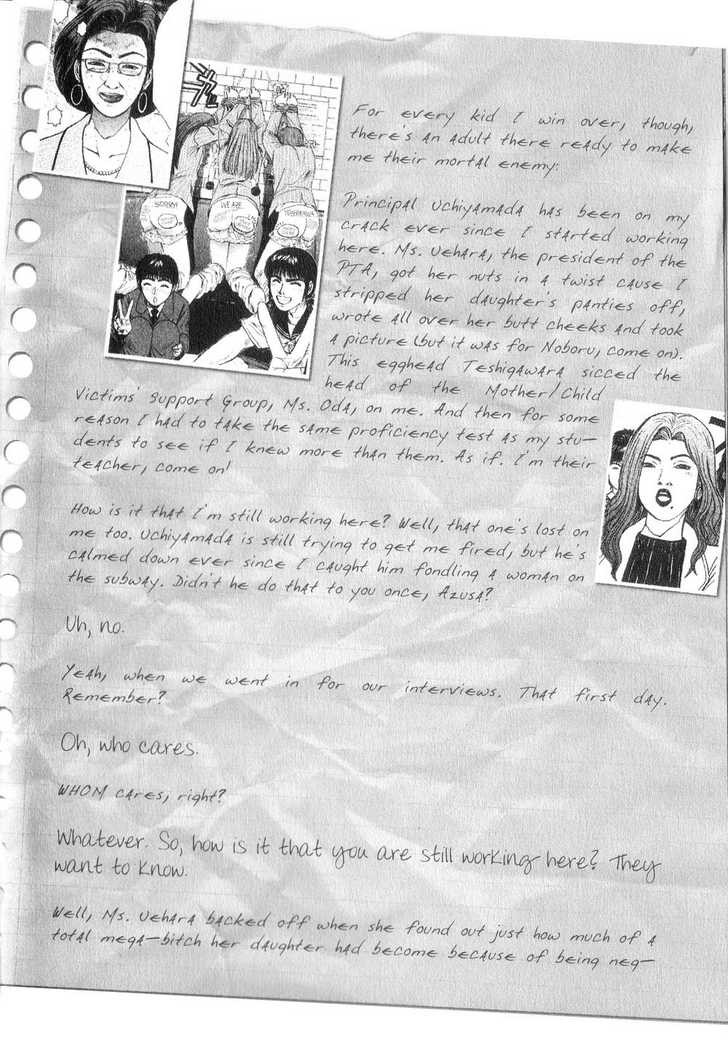 For every kid I win over, though,
there's an adult there ready to make
me their mortal enemy.
Principal Uchiyamada has been on my
crack ever since I started working
here. Ms. Uehara, the president of the
PTA, got her nuts in a twist cause I
stripped her daughter's panties off,
wrote all over her butt cheeks and took
a picture (but it was for Noboru, come on).
This egghead Teshigawara sicced the
head of the Mother/Child
Victims' Support Group, Ms. Oda, on me. And then for some
reason I had to take the same proficiency test as my stu-
dents to see if I knew more than them. As if. I'm their
teacher, come on!
How is it that I'm still working here? Well, that one's lost on
me too. Uchiyamada is still trying to get me fired, but he's
calmed down ever since I caught him fondling a woman on
the subway. Didn't he do that to you once, Azusa?
Uh, no.
Yeah, when we went in for our interviews. That first day.
Remember?
Oh, who cares.
WHOM cares, right?
Whatever. So, how is it that you are still working here? They
want to know.
Well, Ms. Uehara backed off when she found out just how much of a
total mega-bitch her daughter had become because of being neg-